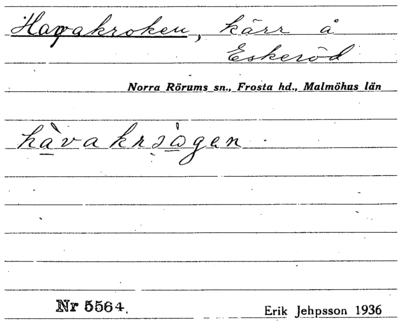 Havakroken, kärr å
Eskeröd
Norra Rörums sn., Frosta hd., Malmöhus län
Nr 5564.
Erik Jehpsson 1936